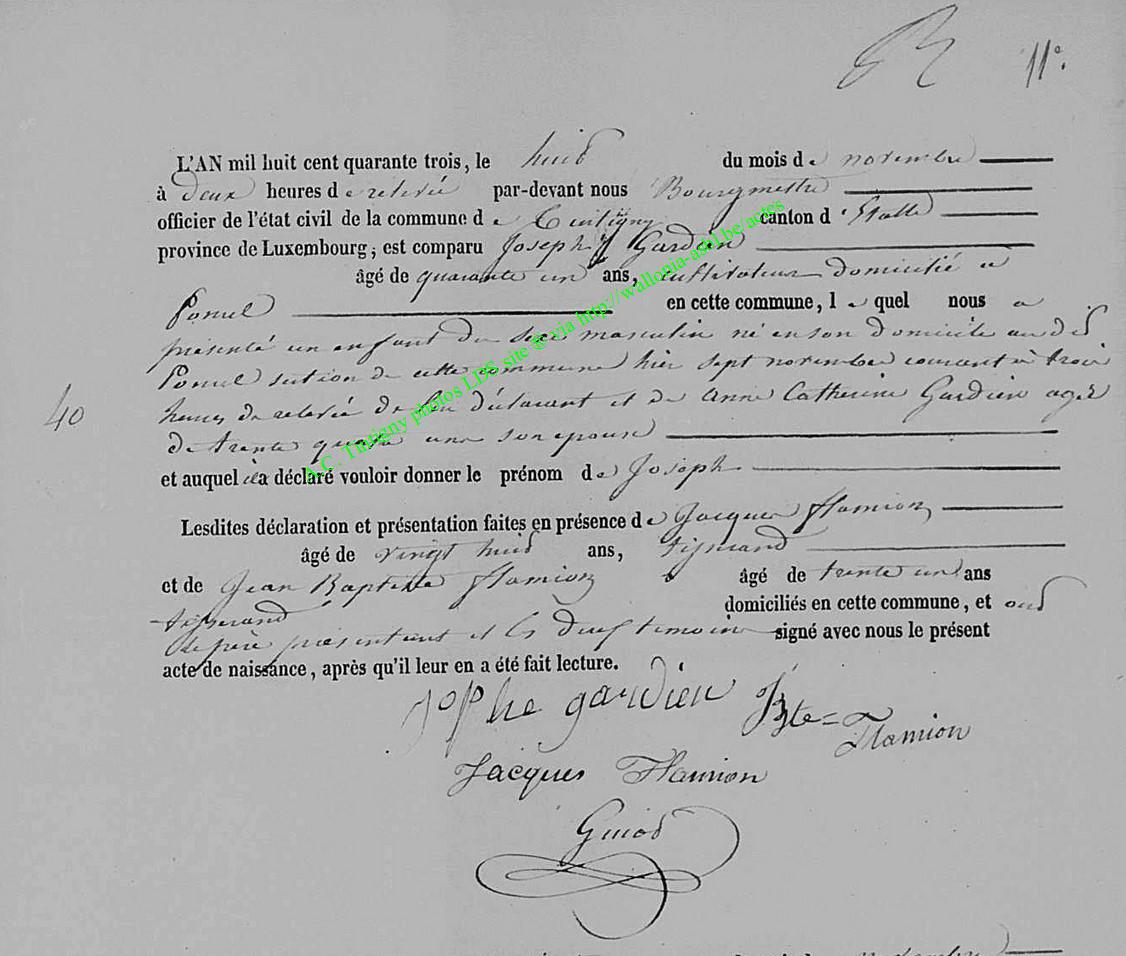 11e.
L'AN mil huit cent quarante trois, le huit du mois de novembre
à deux heures de relevée par-devant nous Bourgmestre
officier de l'état civil de la commune de Tintigny canton d'Etalle
province de Luxembourg; est comparu Joseph Gardien
âgé de quarante un ans, cultivateur domicilié a
Ponsel en cette commune, lequel nous a
présenté un enfant du sexe masculin né en son domicile au dit
Ponsel section de cette commune hier sept novembre courant à trois
40
heures de relevée de lui déclarant et de Anne Catherine Gardien agée
de trente quatre ans son epouse
et auquel il a déclaré vouloir donner le prénom de Joseph
Lesdites déclaration et présentation faites en présence de Jacques Flamion
âgé de vingt huit ans, tisserand
et de Jean Baptiste Flamion âgé de trente un ans
tisserand domiciliés en cette commune, et ont
le père présentant et les deux temoins signé avec nous le présent
acte de naissance, après qu'il leur en a été fait lecture.
Jophe gardien JBte= Flamion
Jacques Flamion
Guiot
A.C. Tintigny photos LDS site @ via http://wallonia-asbl.be/actes